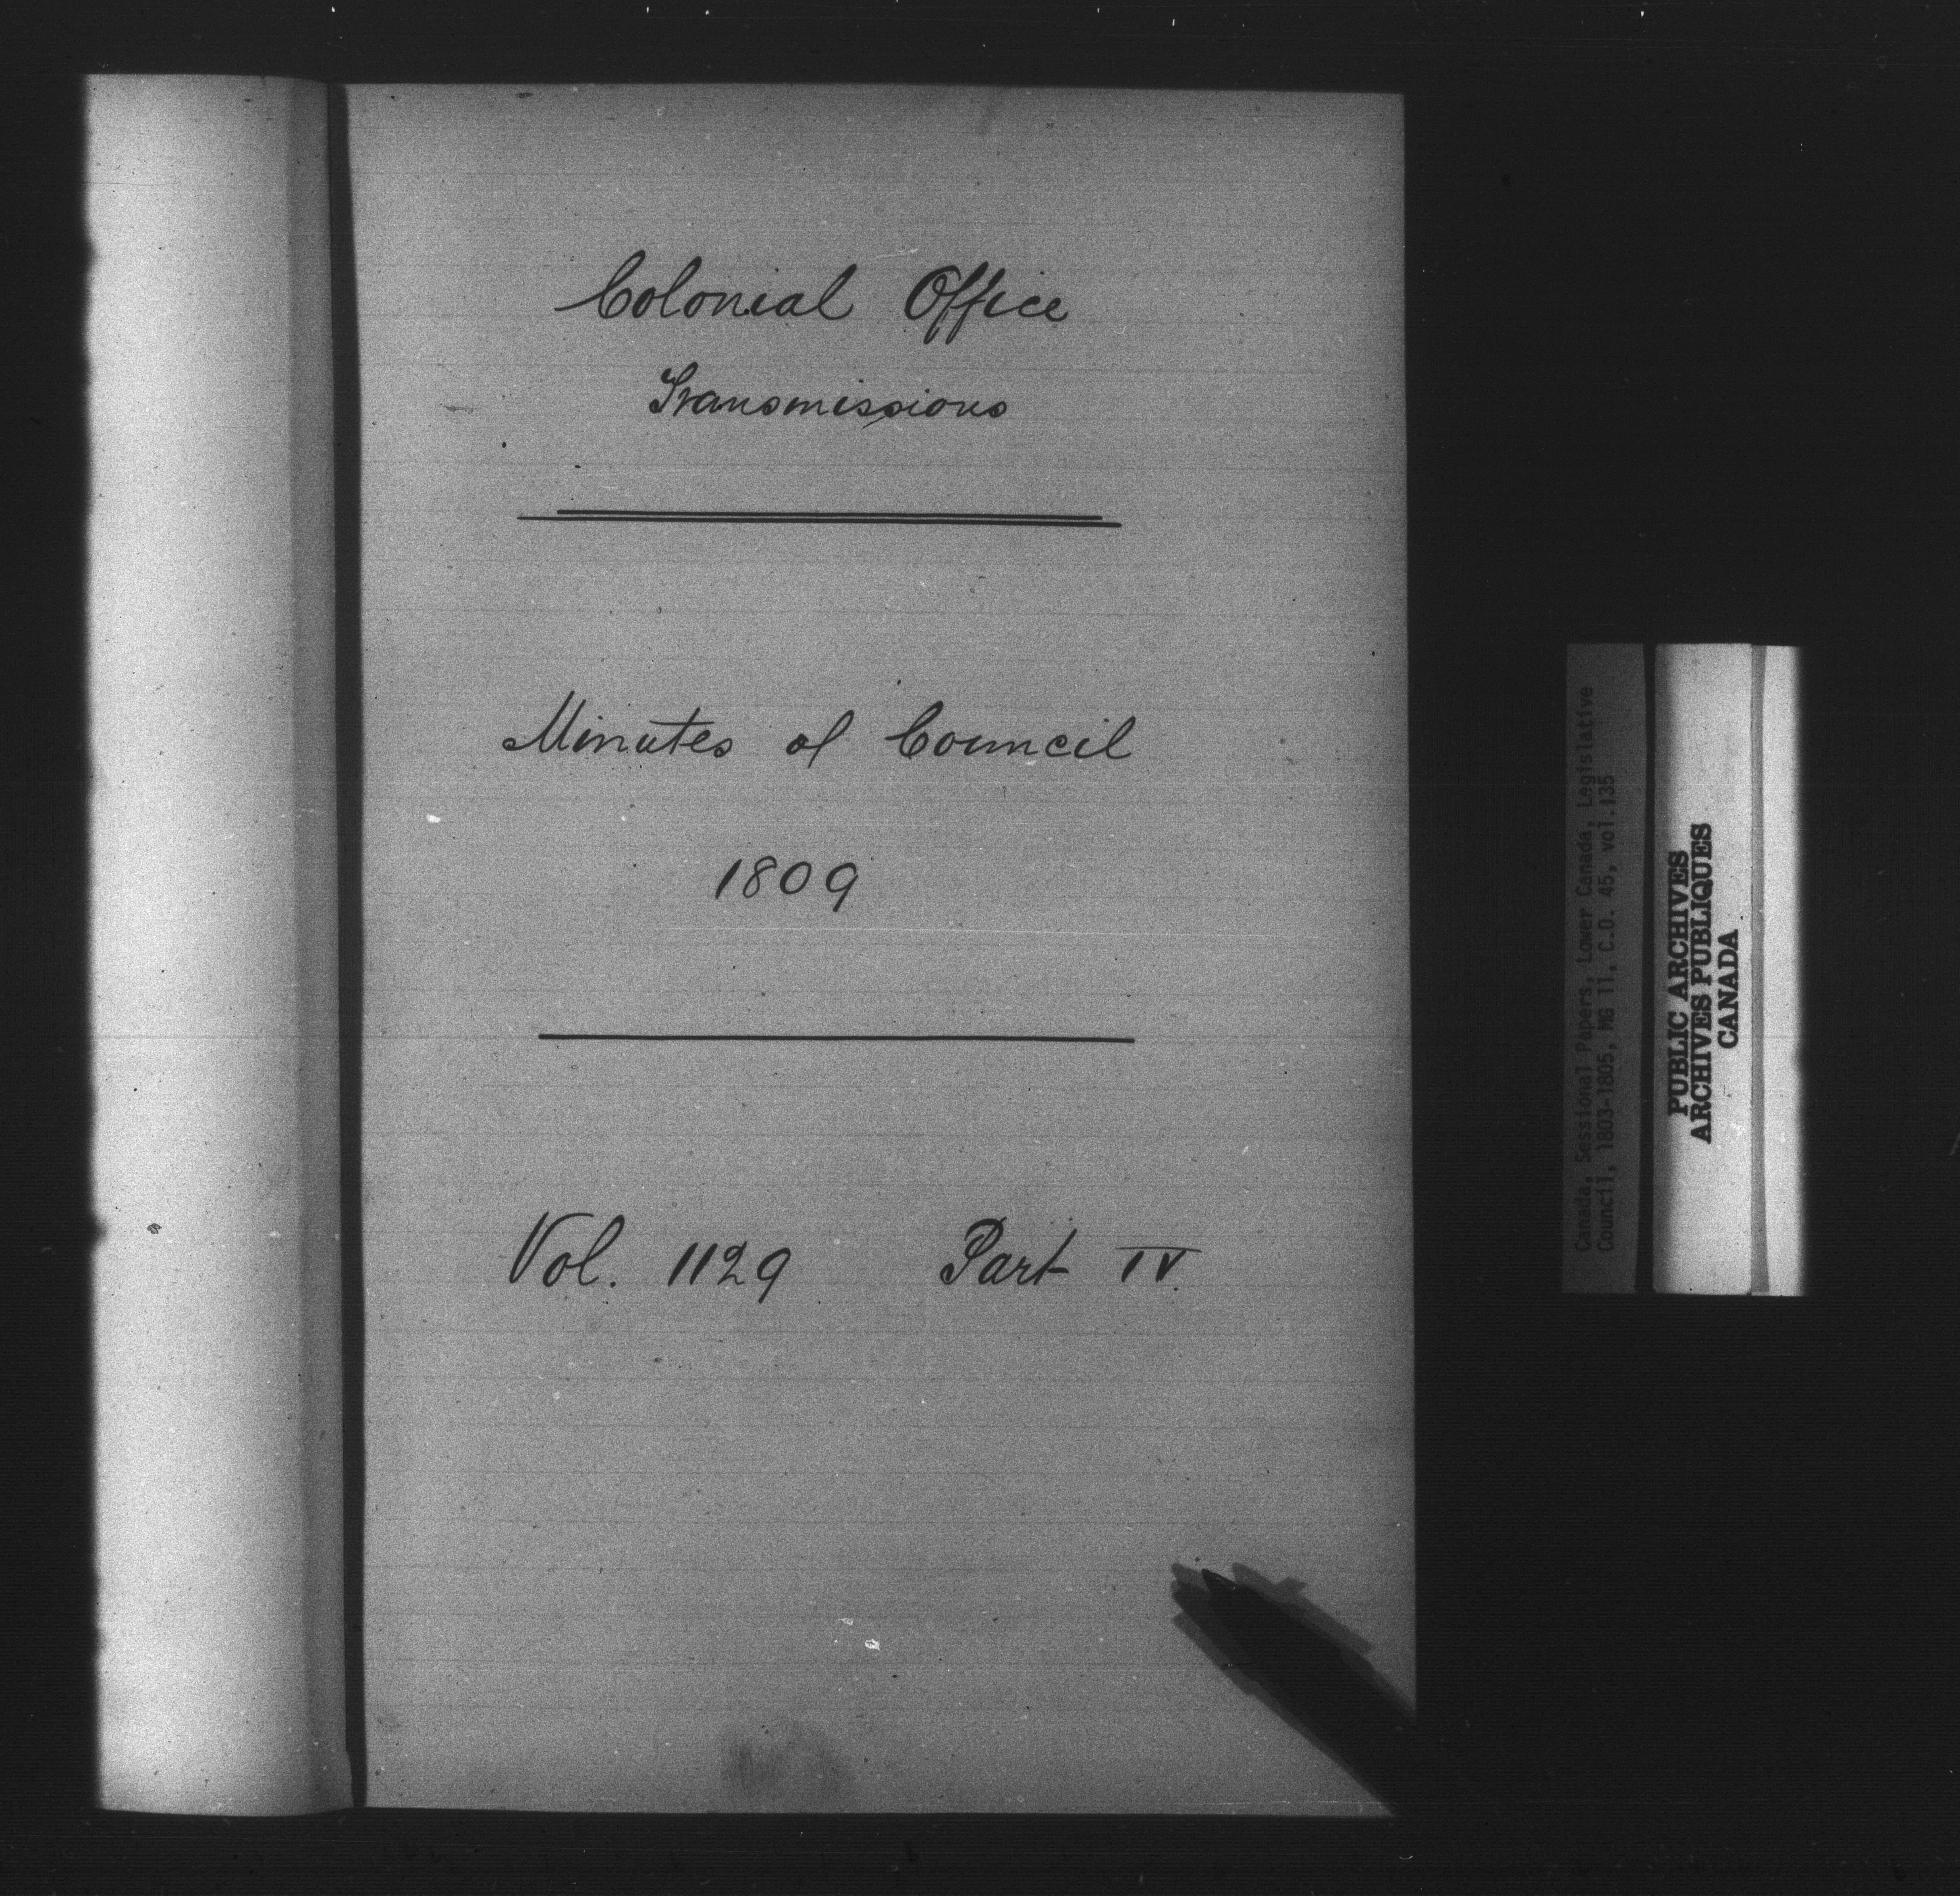 Colonial Office
Transmissions
Minutes of Council
1809
Vol. 1129 Part IV.
Canada, Sessional Papers, Lower Canada, Legislative
Council, 1803-1805, MG 11, C.O. 45, vol.135
PUBLIC ARCHIVES
ARCHIVES PUBLIQUES
CANADA